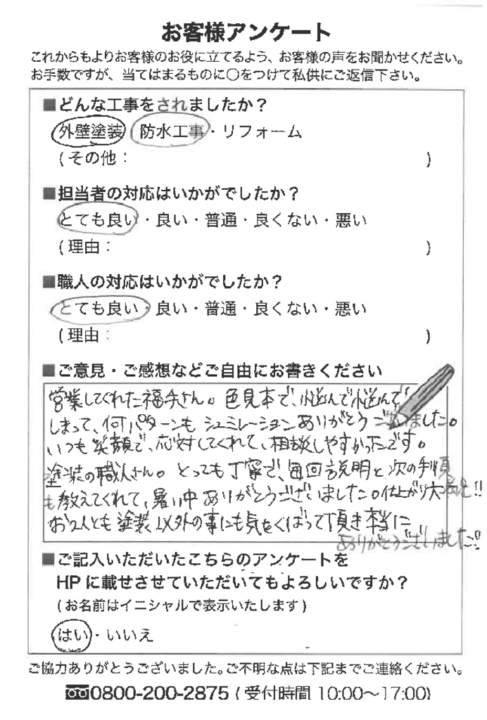 お客様アンケート
これからもよりお客様のお役に立てるよう、お客様の声をお聞かせください。
お手数ですが、当てはまるものに○をつけて私供にご返信下さい。
■どんな工事をされましたか？
外壁塗装・防水工事・リフォーム
(その他： )
■担当者の対応はいかがでしたか？
とても良い・良い・普通・良くない・悪い
(理由： )
■職人の対応はいかがでしたか？
とても良い・良い・普通・良くない・悪い
(理由： )
■ご意見・ご感想などご自由にお書きください
営業してくれた福手さん。色見本で、悩んで悩んで
しまって、何パターンもシュミレーションありがとうございました。
いつも笑顔で、応対してくれて、相談しやすかったです。
塗装の職人さん。とっても丁寧で、毎回説明と次の手順
も教えてくれて、暑い中ありがとうございました。仕上がり大満足!!
お2人とも塗装以外の事にも気をくばって頂き本当に
ありがとうございました!!
■ご記入いただいたこちらのアンケートを
HPに載せさせていただいてもよろしいですか？
(お名前はイニシャルで表示いたします)
はい・いいえ
ご協力ありがとうございました。ご不明な点は下記までご連絡ください。
0800-200-2875 (受付時間 10:00〜17:00)